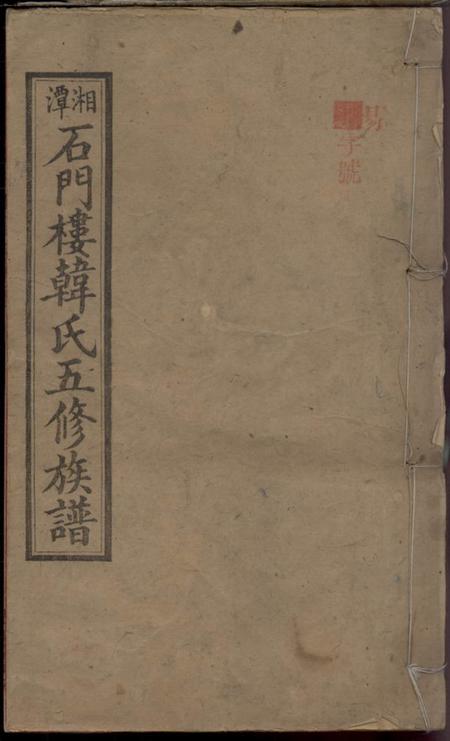 字號
湘潭
石門樓韓氏五修族譜